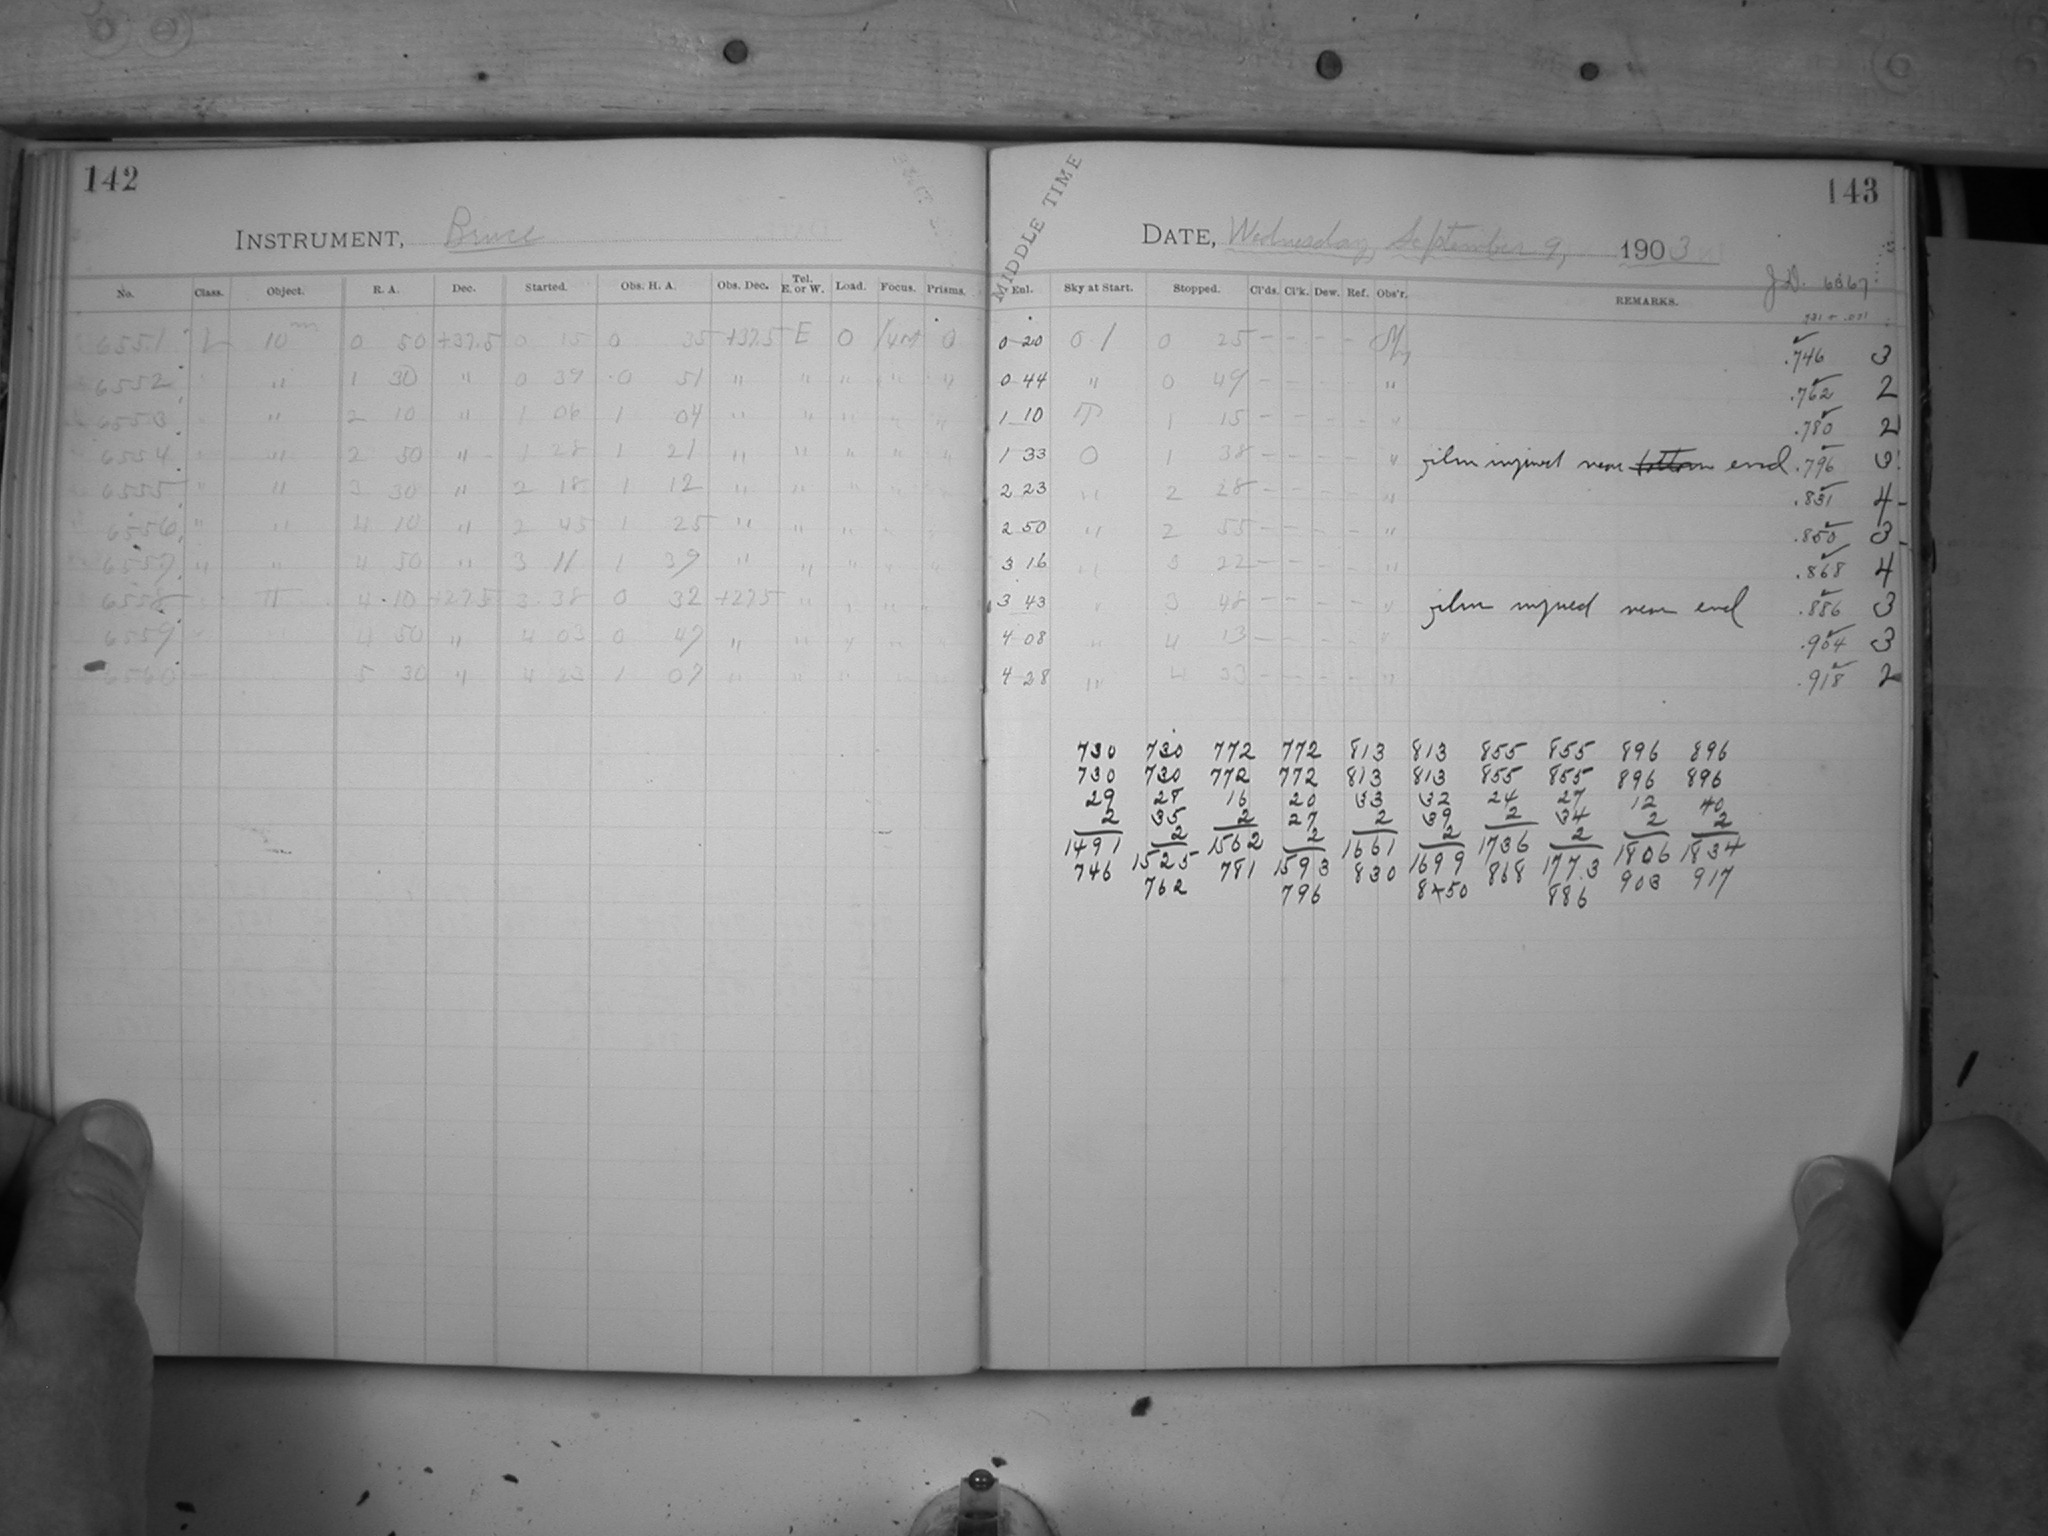 142
INSTRUMENT, Bruce
No. Class. Object. R. A. Dec. Started. Obs. H. A. Obs. Dec. Tel. E. or W. Load. Focus. Prisms.
6551 L 10m 0 50 +37.5 0 15 0 35 +37.5 E 0 0
6552 " " 1 30 " 0 39 0 51 " " " " "
6553 " " 2 10 " 1 06 1 04 " " " " "
6554 " " 2 50 " 1 28 1 21 " " " " "
6555 " " 3 30 " 2 18 1 12 " " " " "
6556 " " 4 10 " 2 45 1 25 " " " " "
6557 " " 4 50 " 3 11 1 39 " " " " "
6558 " " 4 10 +27.5 3 38 0 32 +27.5 " " " "
6559 4 50 " 4 03 0 47 " " " " "
6560 5 30 " 4 23 1 07 " " " " "
143
MIDDLE TIME
DATE, Wednesday, September 9, 1903
J.D. 6367
Enl. Sky at Start. Stopped. Cl'ds. Cl'k. Dew. Ref. Obs'r. REMARKS.
0 20 0 1 0 25 - - - - .746 3
0 44 " 0 49 - - - - " .762 2
1 10 1 15 - - - - " .780 2
1 33 0 1 38 - - - - " film injured near bottom end .796 3
2 23 " 2 28 - - - - " .831 4
2 50 " 2 55 - - - - " .850 3
3 16 " 3 22 - - - - " .868 4
3 43 " 3 48 - - - - " film injured near end .886 3
4 08 " 4 13 - - - - " .904 3
4 28 " 4 33 - - - - " .918 2
730 730 772 772 813 813 855 855 896 896
730 730 772 772 813 813 855 855 896 896
29 28 16 20 33 32 24 27 12 40
2 35 2 27 2 39 2 34 2 2
1491 2 1562 2 1661 2 1736 2 1806 1834
746 1525 781 1593 830 1699 868 1773 903 917
762 796 850 886